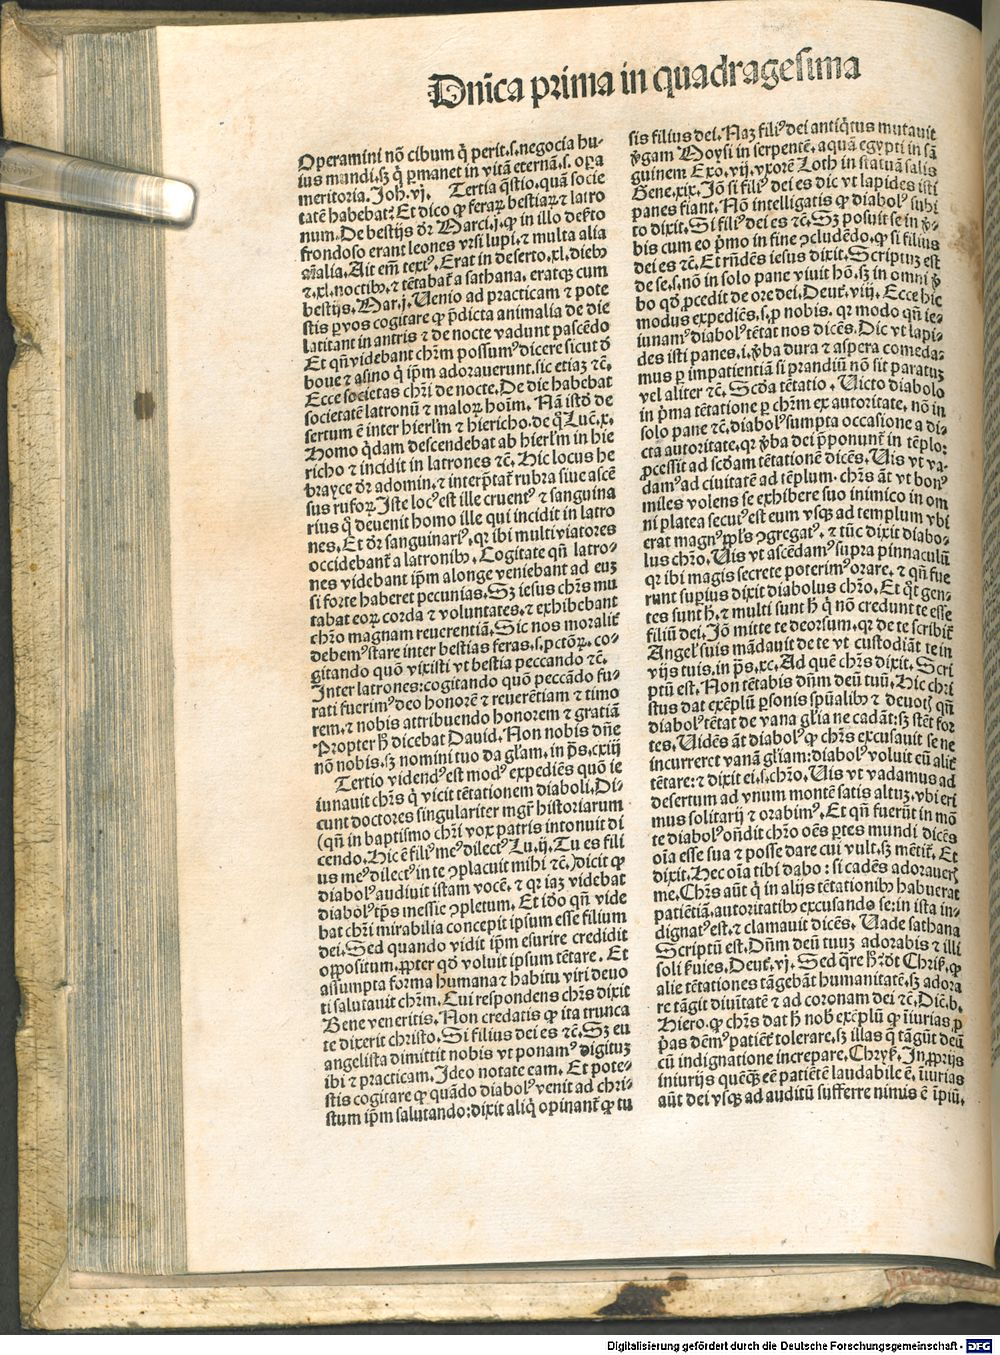 Dnīca prima in quadragesima
Operamini nō cibum q̄ perit.s.negocia hu-
ius mundi.sꝫ q̄ ꝑmanet in vitā eternā.s. oꝑa
meritoria. Joh.vj. Tertia q̄stio.quā socie
tatē habebat? Et dico ꝙ feraꝝ bestiaꝝ ⁊ latro
num. De bestijs dr̄ Marci.j.ꝙ in illo deẜto
frondoso erant leones vrsi lupi.⁊ multa alia
aīalia. Ait em̄ textꝰ. Erat in deserto.xl.diebꝰ
⁊.xl.noctibꝰ.⁊ tētabat̄ a sathana. eratqꝫ cum
bestijs. Mar.j. Uenio ad practicam ⁊ pote
stis ꝑ vos cogitare ꝙ p̄dicta animalia de die
latitant in antris ⁊ de nocte vadunt pascēdo
Et qn̄ videbant chr̄m possumꝰ dicere sicut ð
boue ⁊ asino q̄ ip̄m adorauerunt.sic etiaꝫ ⁊c̄.
Ecce societas chr̄i de nocte. De die habebat
societatē latronū ⁊ maloꝝ hoīm. Nā istð de
sertum ē inter hierl̄m ⁊ hiericho.de q̄ Luc̄.x.
Homo q̄dam descendebat ab hierl̄m in hie
richo ⁊ incidit in latrones ⁊c̄. Hic locus he
brayce dr̄ adomin.⁊ interp̄tat̄ rubra siue ascē
sus rufoꝝ. Iste locꝰ est ille cruentꝰ ⁊ sanguina
rius q̄ deuenit homo ille qui incidit in latro
nes. Et dr̄ sanguinariꝰ.qꝛ ibi multi viatores
occidebant̄ a latronibꝰ. Cogitate qn̄ latro-
nes videbant ip̄m alonge veniebant ad euꝫ
si forte haberet pecunias. Sꝫ iesus chr̄s mu
tabat eoꝝ corda ⁊ voluntates.⁊ exhibebant
chr̄o magnam reuerentiā. Sic nos moralit̄
debemꝰ stare inter bestias feras.s.pctōꝝ. co-
gitando quō vixisti vt bestia peccando ⁊c̄.
Inter latrones:cogitando quō peccādo fu-
rati fuerimꝰ deo honorē ⁊ reuerētiam ⁊ timo
rem.⁊ nobis attribuendo honorem ⁊ gratiā
Propter h̄ dicebat Dauid. Non nobis dn̄e
nō nobis.sꝫ nomini tuo da gl̄am. in p̄s.cxiij
Tertio videndꝰ est modꝰ expediēs quō ie
iunauit chr̄s q̄ vicit tētationem diaboli. Di-
cunt doctores singulariter mgr̄ historiarum
(qn̄ in baptismo chr̄i vox patris intonuit di
cendo. Hic ē filiꝰ meꝰ dilectꝰ Lu.ij. Tu es fili
us meꝰ dilectꝰ in te ꝯplacuit mihi ⁊c̄.) dicit ꝙ
diabolꝰ audiuit istam vocē. ⁊ qꝛ iaꝫ videbat
diabolꝰ tp̄s messie ꝯpletum. Et iðo qn̄ vide
bat chr̄i mirabilia concepit ipsum esse filium
dei. Sed quando vidit ip̄m esurire credidit
oppositum. ꝓpter qð voluit ipsum tētare. Et
assumpta forma humana ⁊ habitu viri deuo
ti salutauit chr̄m. Cui respondens chr̄s dixit
Bene veneritis. Non credatis ꝙ ita trunca
te dixerit christo. Si filius dei es ⁊c̄. Sꝫ eu
angelista dimittit nobis vt ponamꝰ digituꝫ
ibi ⁊ practicam. Ideo notate eam. Et pote-
stis cogitare ꝙ quādo diabolꝰ venit ad chri-
stum ip̄m salutando:dixit aliq̄ opinant̄ ꝙ tu
sis filius dei. Naꝫ filiꝰ dei antiq̄tus mutauit
v̄gam Moysi in serpentē. aquā egypti in sā
guinem Exo.vij. vxorē Loth in statuā salis
Gene.xix. Iō si filiꝰ dei es dic vt lapides isti
panes fiant. Nō intelligatis ꝙ diabolꝰ subi
to dixit. Si filiꝰ dei es ⁊c̄. Sꝫ posuit se in v̄-
bis cum eo p̄mo in fine ꝯcludēdo.ꝙ si filius
dei es ⁊c̄. Et rn̄dēs iesus dixit. Scriptuꝫ est
de se.s.nō in solo pane viuit hō.sꝫ in omni v̄
bo qð ꝓcedit de ore dei. Deut̄.viij. Ecce hic
modus expediēs.s.ꝑ nobis. qꝛ modo qn̄ ie-
iunamꝰ diabolꝰ tētat nos dicēs. Dic vt lapi-
des isti panes.i.v̄ba dura ⁊ aspera comeda-
mus ꝑ impatientiā si prandiū nō sit paratuꝫ
vel aliter ⁊c̄. Scðа tētatio. Uicto diabolo
in p̄ma tētatione ꝑ chr̄m ex autoritate. nō in
solo pane ⁊c̄.diabolꝰ sumpta occasione a di-
cta autoritate.qꝛ v̄ba dei p̄ponunt̄ in tēplo:
ꝓcessit ad scðam tētationē dicēs. Uis vt va-
damꝰ ad ciuitatē ad tēplum. chr̄s āt vt bonꝰ
miles volens se exhibere suo inimico in om
ni platea secutꝰ est eum vsqꝫ ad templum vbi
erat magnꝰ ppl̄s ꝯgregatꝰ. ⁊ tūc dixit diabo-
lus chr̄o. Uis vt ascēdamꝰ supra pinnaculū
qꝛ ibi magis secrete poterimꝰ orare. ⁊ qn̄ fue
runt suꝑius dixit diabolus chr̄o. Et q̄t gen-
tes sunt h̄.⁊ multi sunt h̄ q̄ nō credunt te esse
filiū dei. Iō mitte te deorsum.qꝛ de te scribit̄
Angel̄ suis mādauit de te vt custodiāt te in
vijs tuis. in p̄s.xc. Ad quē chr̄s dixit. Scri
ptū est. Non tētabis dn̄m deū tuū. Hic chri
stus dat exēplū ꝑsonis spūalibꝰ ⁊ deuotꝭ qn̄
diabolꝰ tētat de vana gl̄ia ne cadāt:sꝫ stēt for
tes. Uidēs āt diabolꝰ ꝙ chr̄s excusauit se ne
incurreret vanā gl̄iam:diabolꝰ voluit eū alit̄
tētare:⁊ dixit ei.s.chr̄o. Uis vt vadamus ad
desertum ad vnum montē satis altuꝫ.vbi eri
mus solitarij ⁊ orabimꝰ. Et qn̄ fuerūt in mō
te diabolꝰ on̄dit chr̄o oēs ꝑtes mundi dicēs
oīa esse sua ⁊ posse dare cui vult.sꝫ mētit̄. Et
dixit. Hec oīa tibi dabo: si cadēs adoraueꝝ
me. Chr̄s aūt q̄ in alijs tētationibꝰ habuerat
patiētiā.autoritatibꝰ excusando se:in ista in-
dignatꝰ est.⁊ clamauit dicēs. Uade sathana
Scriptū est. Dn̄m deū tuuꝫ adorabis ⁊ illi
soli ẜuies. Deut̄.vj. Sed q̄re h̄ꝛðt Chriẜ.ꝙ
alie tētationes tāgebāt humanitatē.sꝫ adora
re tāgit diuītatē ⁊ ad coronam dei ⁊c̄. Dic̄.b.
Hiero.ꝙ chr̄s dat h̄ nob̄ exēplū ꝙ iniurias ꝓ
p̄as dēmꝰ patiēt̄ tolerare.sꝫ illas q̄ tāgūt deū
cū indignatione increpare. Chryẜ. In ꝓprijs
iniurijs quēqꝫ eē patiētē laudabile ē. iniurias
aūt dei vsqꝫ ad auditū sufferre nimis ē īpiū.
Digitalisierung gefördert durch die Deutsche Forschungsgemeinschaft - DFG